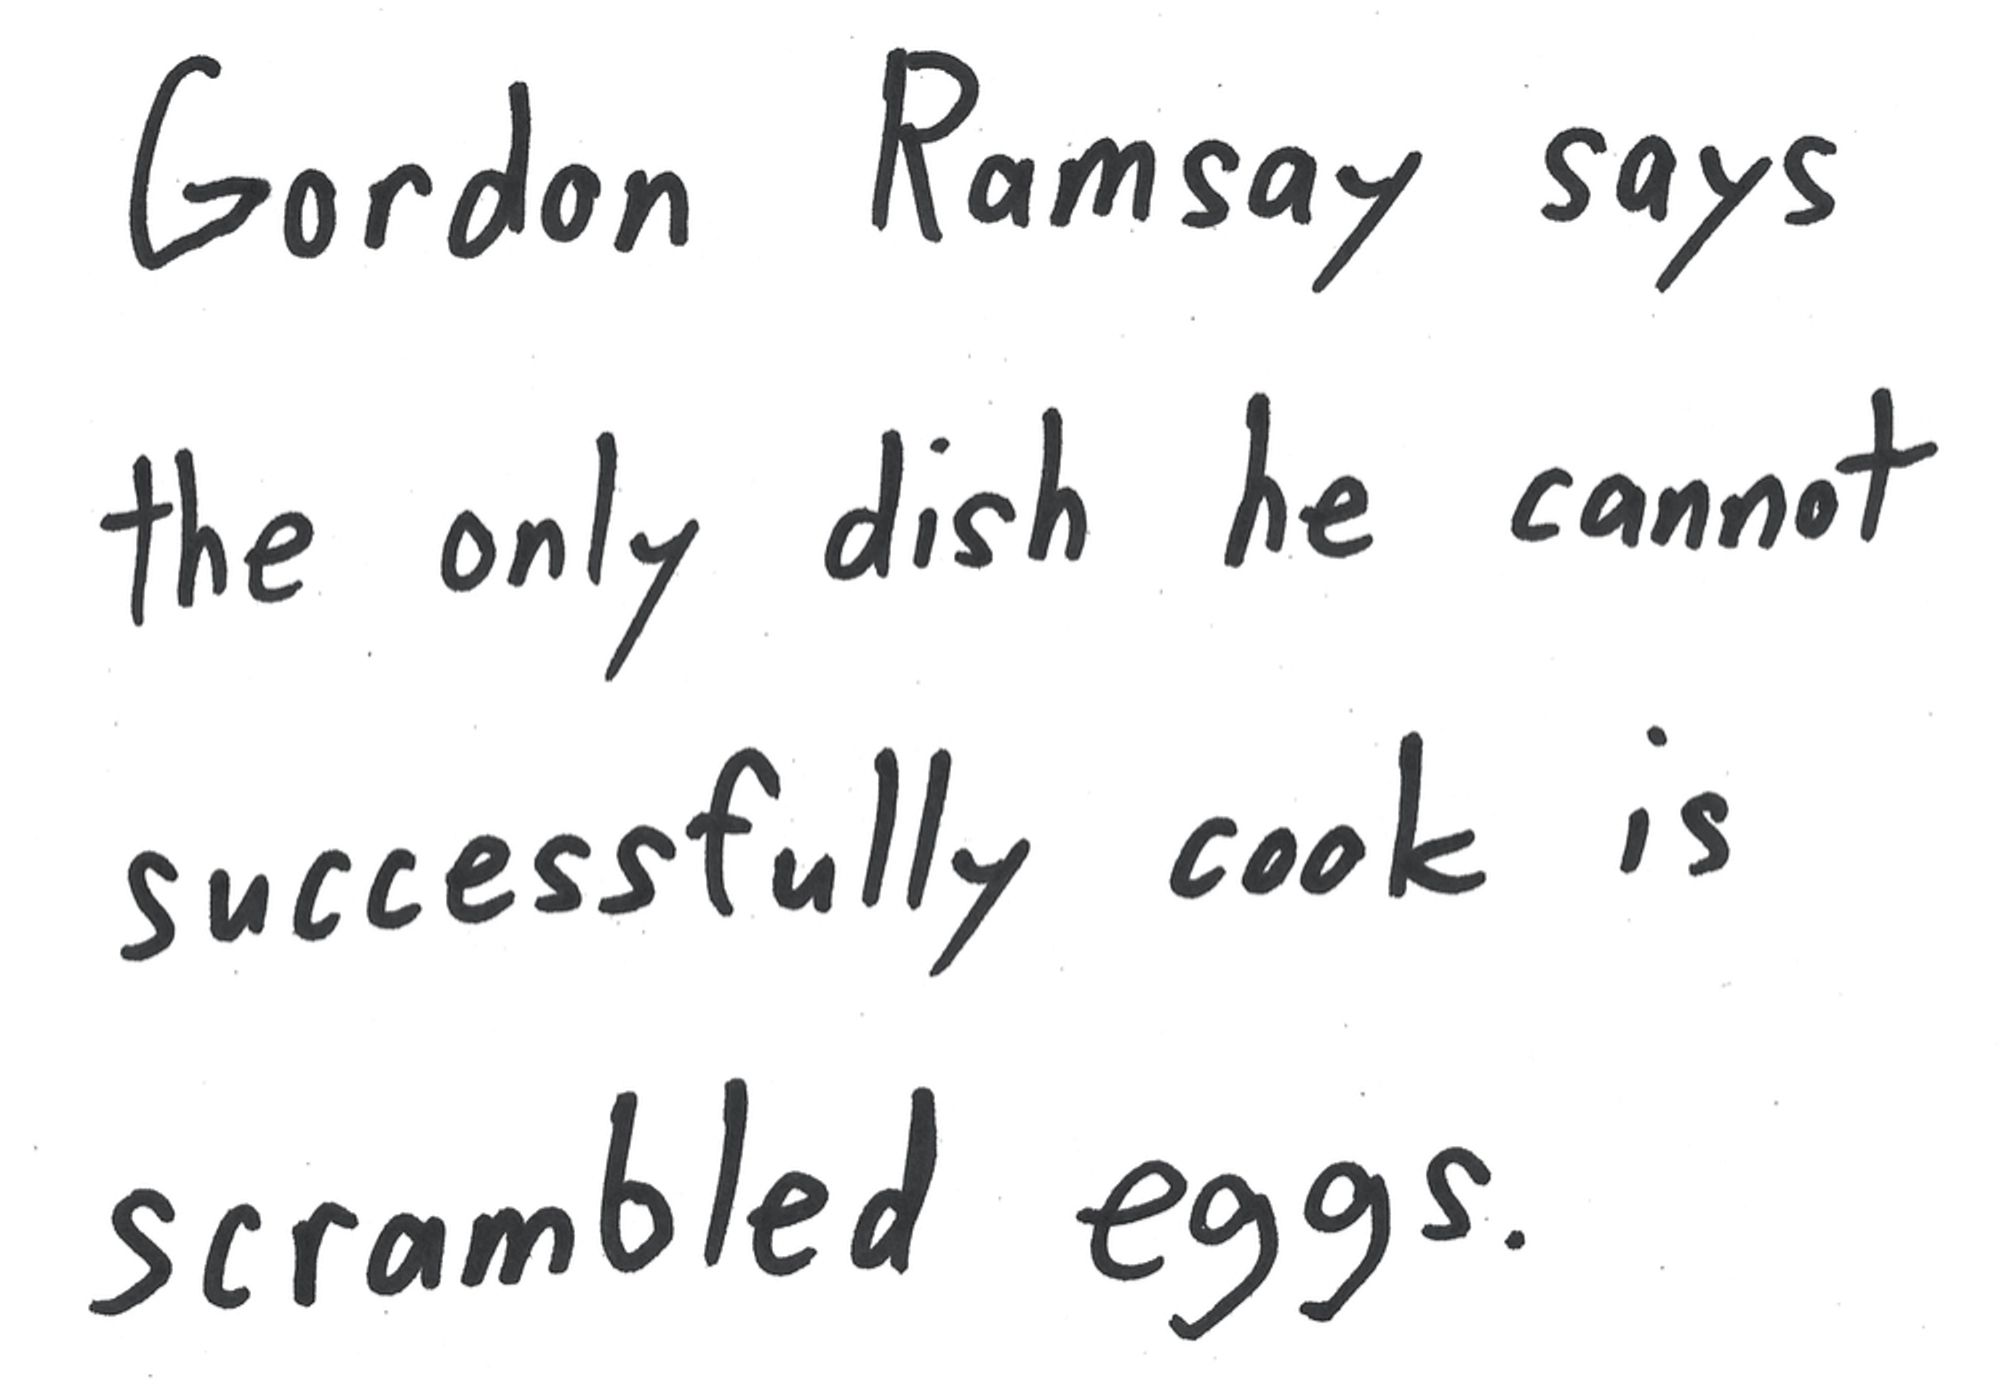 Gordon Ramsay says
the only dish he cannot
successfully cook is
scrambled eggs.